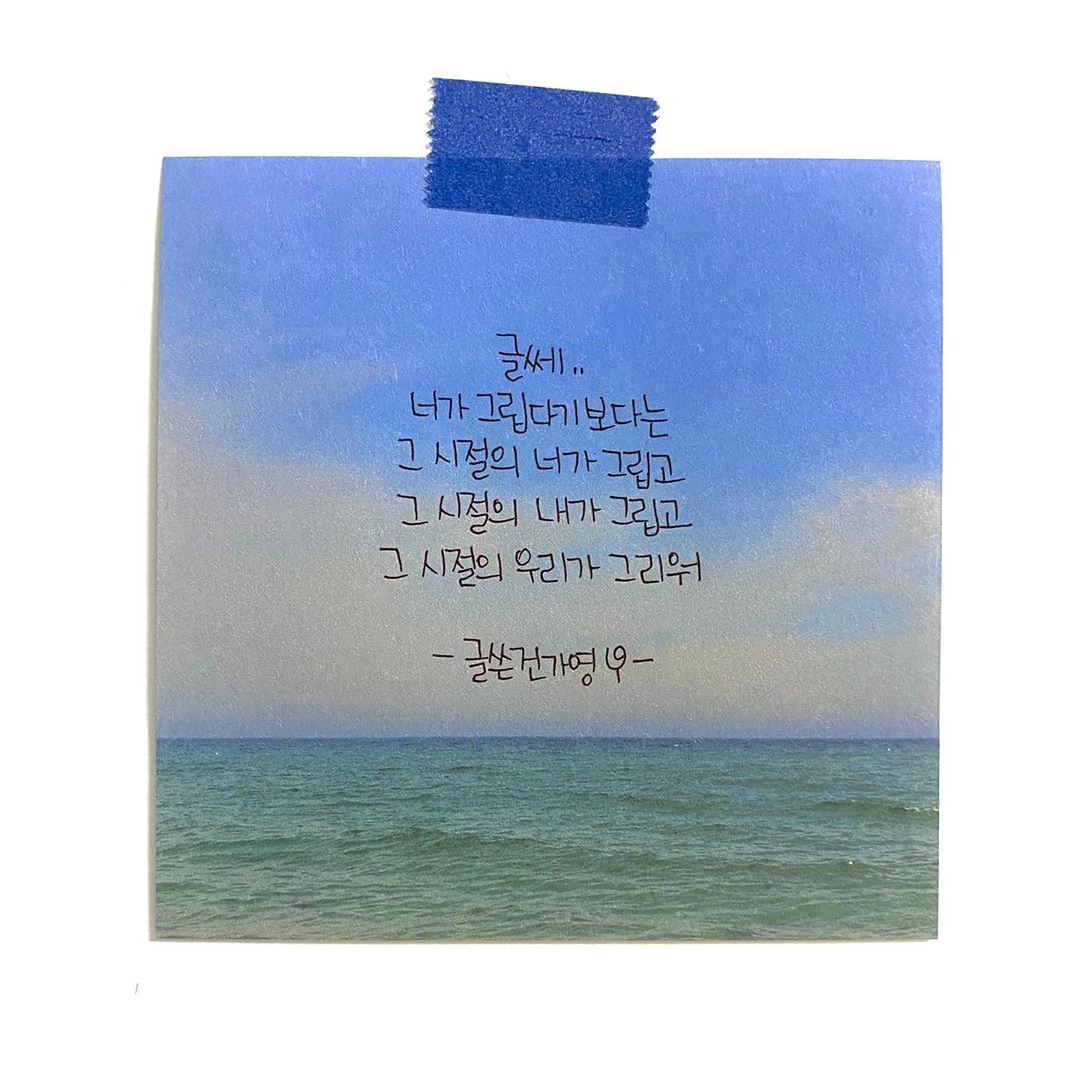 글쎄..
너가 그립다기보다는
그 시절의 너가 그립고
그 시절의 내가 그립고
그 시절의 우리가 그리워
- 글쓴건가영 -